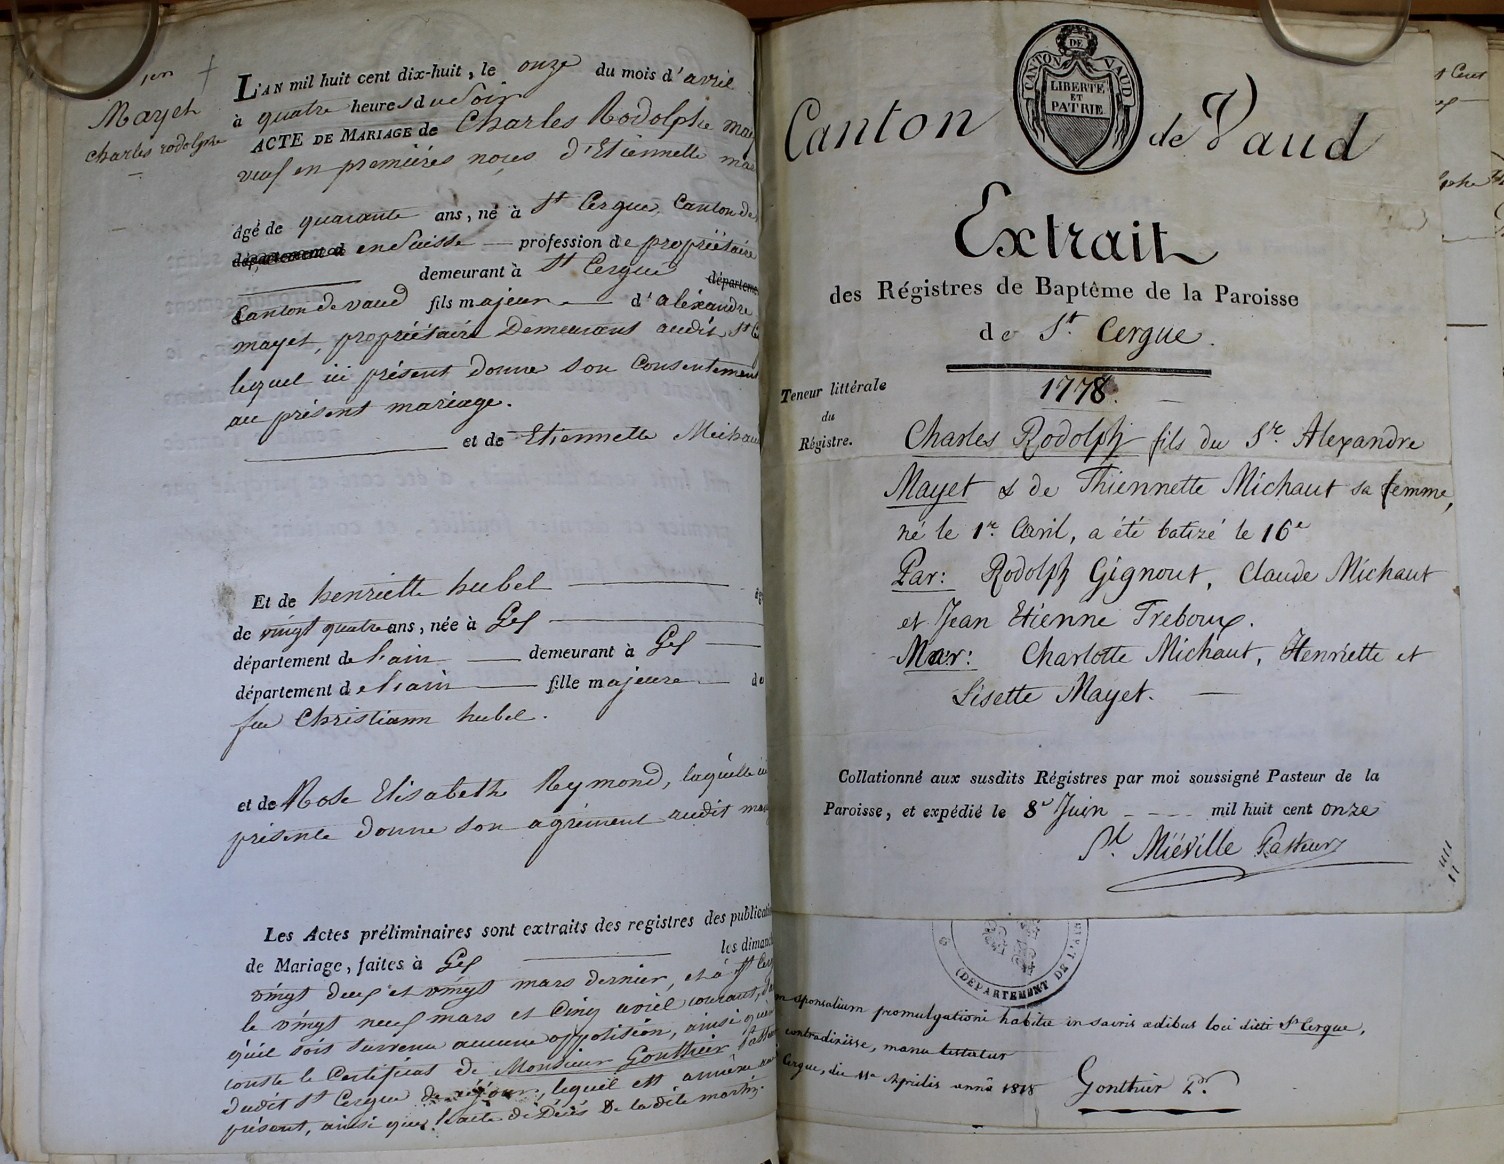 Mayet
charles rodolphe
L'AN mil huit cent dix-huit, le onze du mois d'avril
à quatre heures du Soir
ACTE DE MARIAGE de Charles Rodolphe may
veuf en premières noces d'Etiennette
âgé de quarante ans, né à St Cergue Canton de
département d en Suisse — profession de propriétaire
demeurant à St Cergue départeme
Canton de vaud fils majeur — d'alexandre
mayet, propriétaire Demeurant audit St C
lequel ici présent donne son Consentement
au présent mariage.
et de Etiennette Michau
Et de henriette hubel
de vingt quatre ans, née à Gex
département de l'ain — demeurant à Gex
département de l'ain — fille majeure — de
feu Christiann hubel.
et de Rose Elisabeth Reymond, laquelle ici
présente donne son agrément audit ma
Les Actes préliminaires sont extraits des registres des publicati
de Mariage, faites à Gex les dimanc
vingt deux et vingt mars dernier, et à St Cerg
le vingt neuf mars et Cinq avril courant,
qu'il soit survenu aucune opposition, ainsi que
conste le Certificat de Monsieur Gonthier Pasteur
dudit St Cergue lequel est annexé au
présent, ainsi que l'acte de Décès de la dite
Canton de Vaud
CANTON DE VAUD
LIBERTÉ
ET
PATRIE
Extrait
des Régistres de Baptême de la Paroisse
de St Cergue.
Teneur littérale
du
Régistre.
1778.
Charles Rodolph fils du Sr. Alexandre
Mayet & de Thiennette Michaut sa femme,
né le 1r. Avril, a été batizé le 16e
Par: Rodolph Gignout, Claude Michaut
et Jean Etienne Treboux.
Mar: Charlotte Michaut, Henriette et
Lisette Mayet.
Collationné aux susdits Régistres par moi soussigné Pasteur de la
Paroisse, et expédié le 8e Juin mil huit cent onze
Miéville Pasteur
(DÉPARTEMENT DE L'AIN
sponsalium promulgationi habitæ in sacris ædibus loci dicti St Cergue,
contradixisse, manu testatur
Cergue, die 11a Aprilis annô 1818 Gonthier Pr.